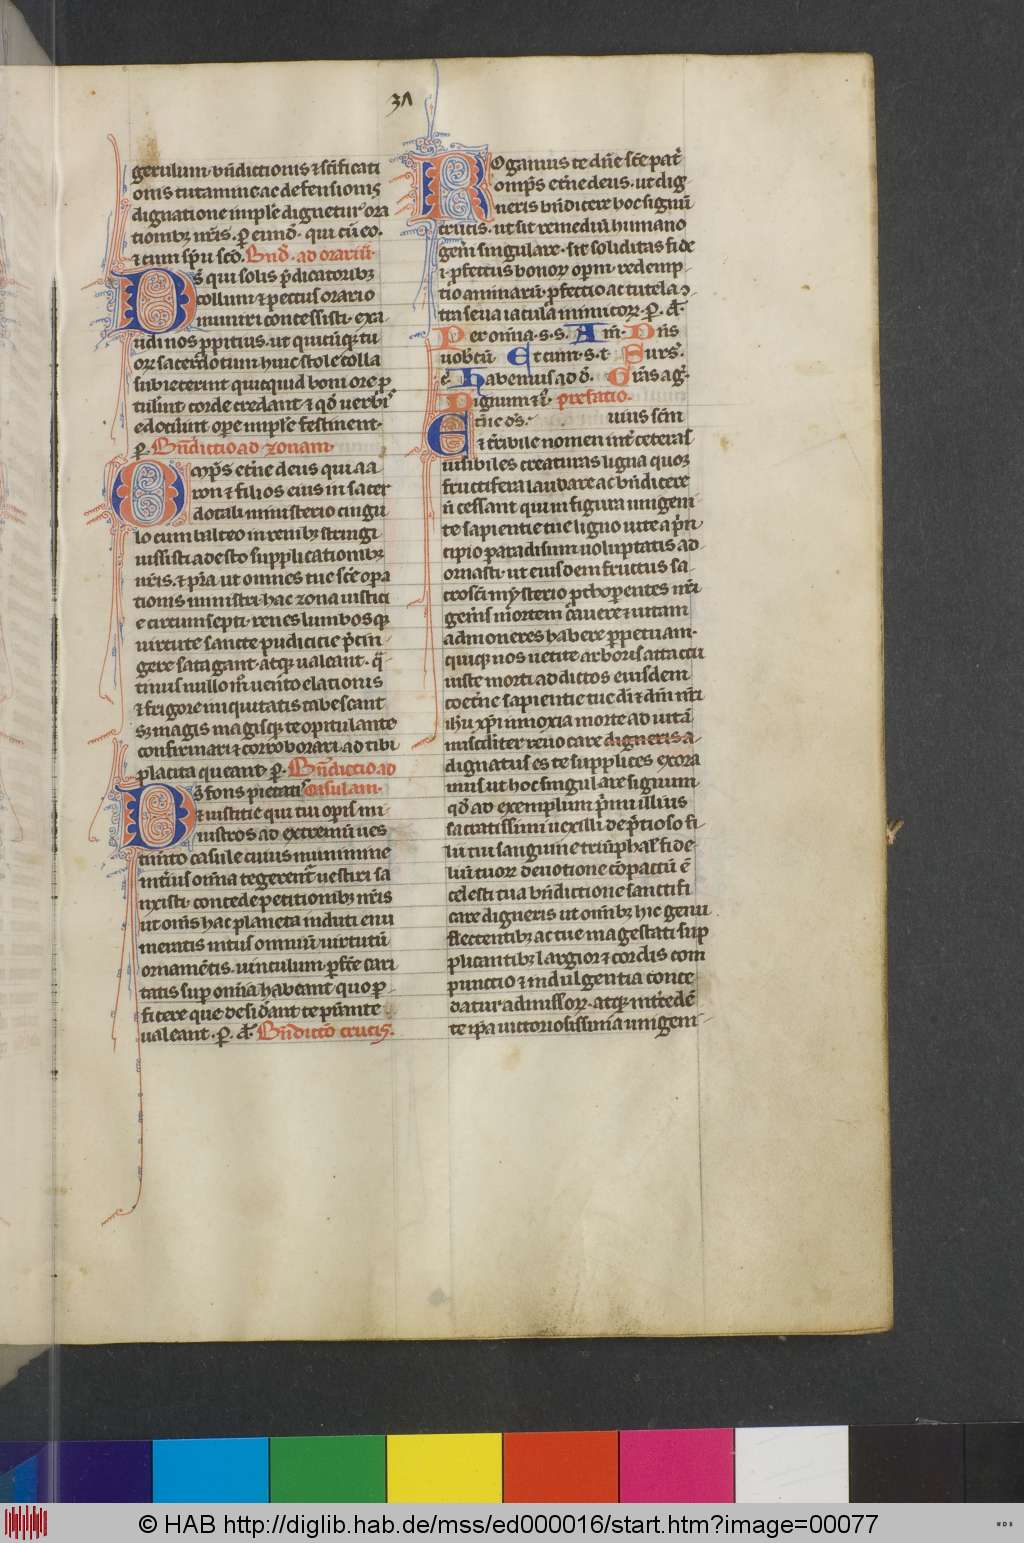 37
gerulum bn̄dictionis ⁊ sc̄ificati
onis tutamine ac defensionis
dignatione imple digneturꝰ ora
tionibꝫ nr̄is. ꝑ eund̄. qui cū eo.
⁊ cum sp̄u sc̄o. Bnd̄. ad orariū.
Ds̄ qui solis p̄dicatoribꝫ
collum ⁊ pectus orario
muniri concessisti. exa
udi nos ꝓpitius. ut quicūqꝫ tu
oꝝ sacerdotum huic stole colla
subiecerint quicquid boni ore ꝓ
tuli̅nt corde credant ⁊ qd̄ uerbi̅s
edocūint ope imple festinent.
ꝑ. Bn̄dictio ad zonam.
Omp̄s et̄ne deus qui aa
ron ⁊ filios eius in sacer
dotali ministerio cingu
lo cum balteo in renibꝫ stringi
iussisti adesto supplicationibꝫ
nr̄is. ⁊ pr̄a. ut omnes tue sc̄e opa
tionis ministri hac zona iustici
e circumsepti. renes lumbosqꝫ
uirtute sancte pudicicie p̄cin
gere satagant. atqꝫ ualeant. q̄
tinus nullo m̄ uento elationis
⁊ frigore iniquitatis tabescant
sꝫ magis magisqꝫ te opitulante
confirmari ⁊ corroborari ad tibi
placita queant ꝑ. Bn̄dictio ad
Ds̄ fons pietatis casulam.
⁊ iusticie qui tui opis mi
nistros ad extremū ues
tim̄to casule cuius munimine
int̄ius om̄ia tegerent̄ uestiri sa
nxisti. concede petitionibꝫ nr̄is
ut om̄s hac planeta induti enu
meratis intus omniū uirtutū
ornam̄tis. uinculum ꝑfc̄e cari
tatis sup om̄ia habeant quo ꝑ
ficere que desid̄ant te p̄uiante
ualeant. ꝑ. d̄. Bn̄dictō crucis.
Rogamus te dn̄e sc̄e pat̄
omp̄s et̄ne deus. ut dig
neris bn̄dicere hoc signū
crucis. ut sit remediū humano
gen̄i singulare. sit soliditas fide
⁊ ꝓfectus bonoꝝ opm̄. redemp
tio animarū. ꝓtectio ac tutela
ꝑ. d̄.
Per om̄ia. s. s. Am̄. Dn̄s
uobc̄ū Et cum. s. t Surs̄.
c̄ Habemus ad d̄. Gr̄as ag̅.
Dignum ⁊ i̅. prefatio.
Et̄ne ds̄. uius sc̄m
⁊ t̄ribile nomen int̄ ceteras
uisibiles creaturas ligna quoqꝫ
fructifera laudare ac bn̄dicere
n̄ cessant qui in figura unigeni
te sapientie tue ligno uite a p̄n
cipio paradisum uoluptatis ad
ornasti. ut eiusdem fructus sa
crosc̄i mysterio prothoparentes nr̄i
gen̄is mortem c̄auere ⁊ uitam
admoneres habere ꝑpetuam.
quiqꝫ nos uetite arboris attactu
iuste morti addictos eiusdem
coet̄ne sapientie tue di̅ ⁊ dn̄i nr̄i
ih̅u xp̄i innoxia morte ad uitā
mis̄cditer reuocare digneris a
dignatus es te supplices exora
mus ut hoc singulare signum
qd̄ ad exemplum p̄mi illius
sacratissimi uexilli de p̄tioso fi
lii tui sanguine triūphal̅ fide
liū tuoꝝ deuotione c̄opactū ē
celesti tua bn̄dictione sanctifi
care digneris ut omībꝫ hic genu
flectentibꝫ ac tue magestati sup
plicantibꝫ largior ⁊ cordis com
punctio ⁊ indulgentia conce
datur admissoꝝ. atqꝫ int̄cedē
te ip̄a uictoriosissima unigeni
© HAB http://diglib.hab.de/mss/ed000016/start.htm?image=00077